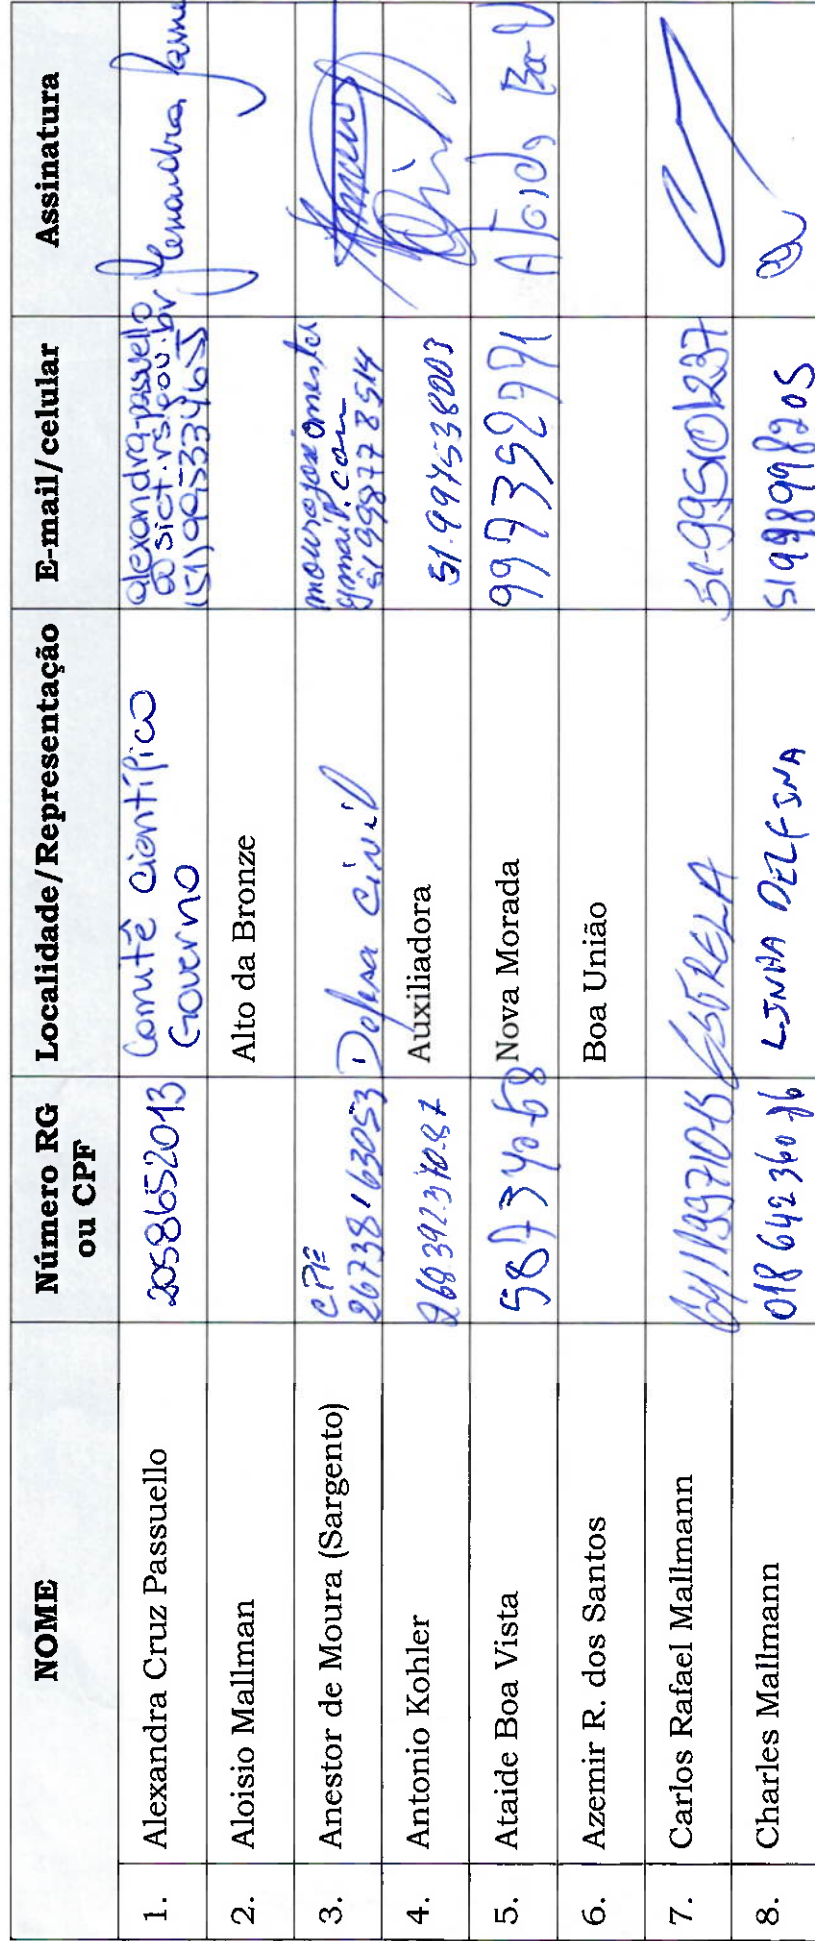 NOME
Número RG
ou CPF
Localidade/Representação
E-mail/celular
Assinatura
1. Alexandra Cruz Passuello
2058652013
Comitê Científico
Governo
alexandra-passuello
@sict.rs.gov.br
(51) 995334655
2. Aloisio Mallman
Alto da Bronze
3. Anestor de Moura (Sargento)
CPF
26738163053
Defesa Civil
gmail.com
51 998778514
4. Antonio Kohler
26839237087
Auxiliadora
51.997538003
5. Ataide Boa Vista
Nova Morada
999352991
6. Azemir R. dos Santos
Boa União
7. Carlos Rafael Mallmann
ESTRELA
51-995101237
8. Charles Mallmann
018 642 360 76
LINHA DELFINA
51998998205